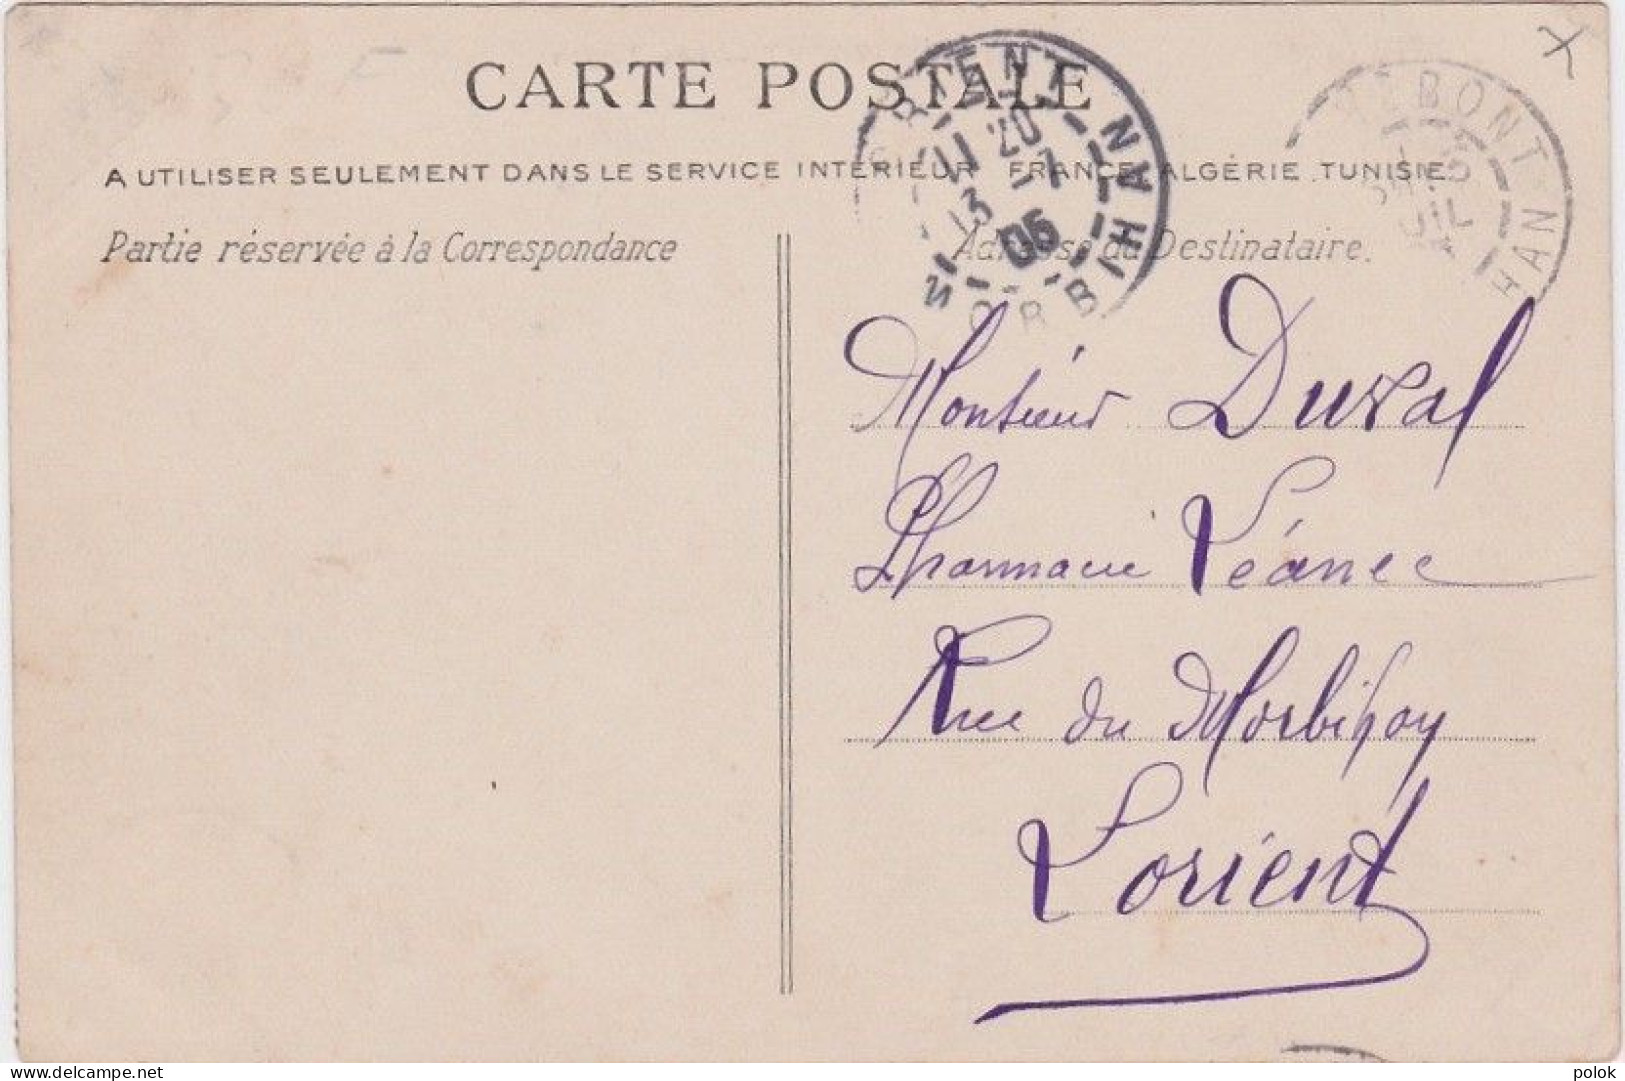 CARTE POSTALE
A UTILISER SEULEMENT DANS LE SERVICE INTÉRIEUR FRANCE, ALGÉRIE TUNISIE
Partie réservée à la Correspondance
Adresse du Destinataire.
RIENT MORBIHAN
11 20
13 -7
05
EBONT HAN
Monsieur Duval
Pharmacie Léanec
Rue du Morbihan
Lorient
delcampe.net
polok